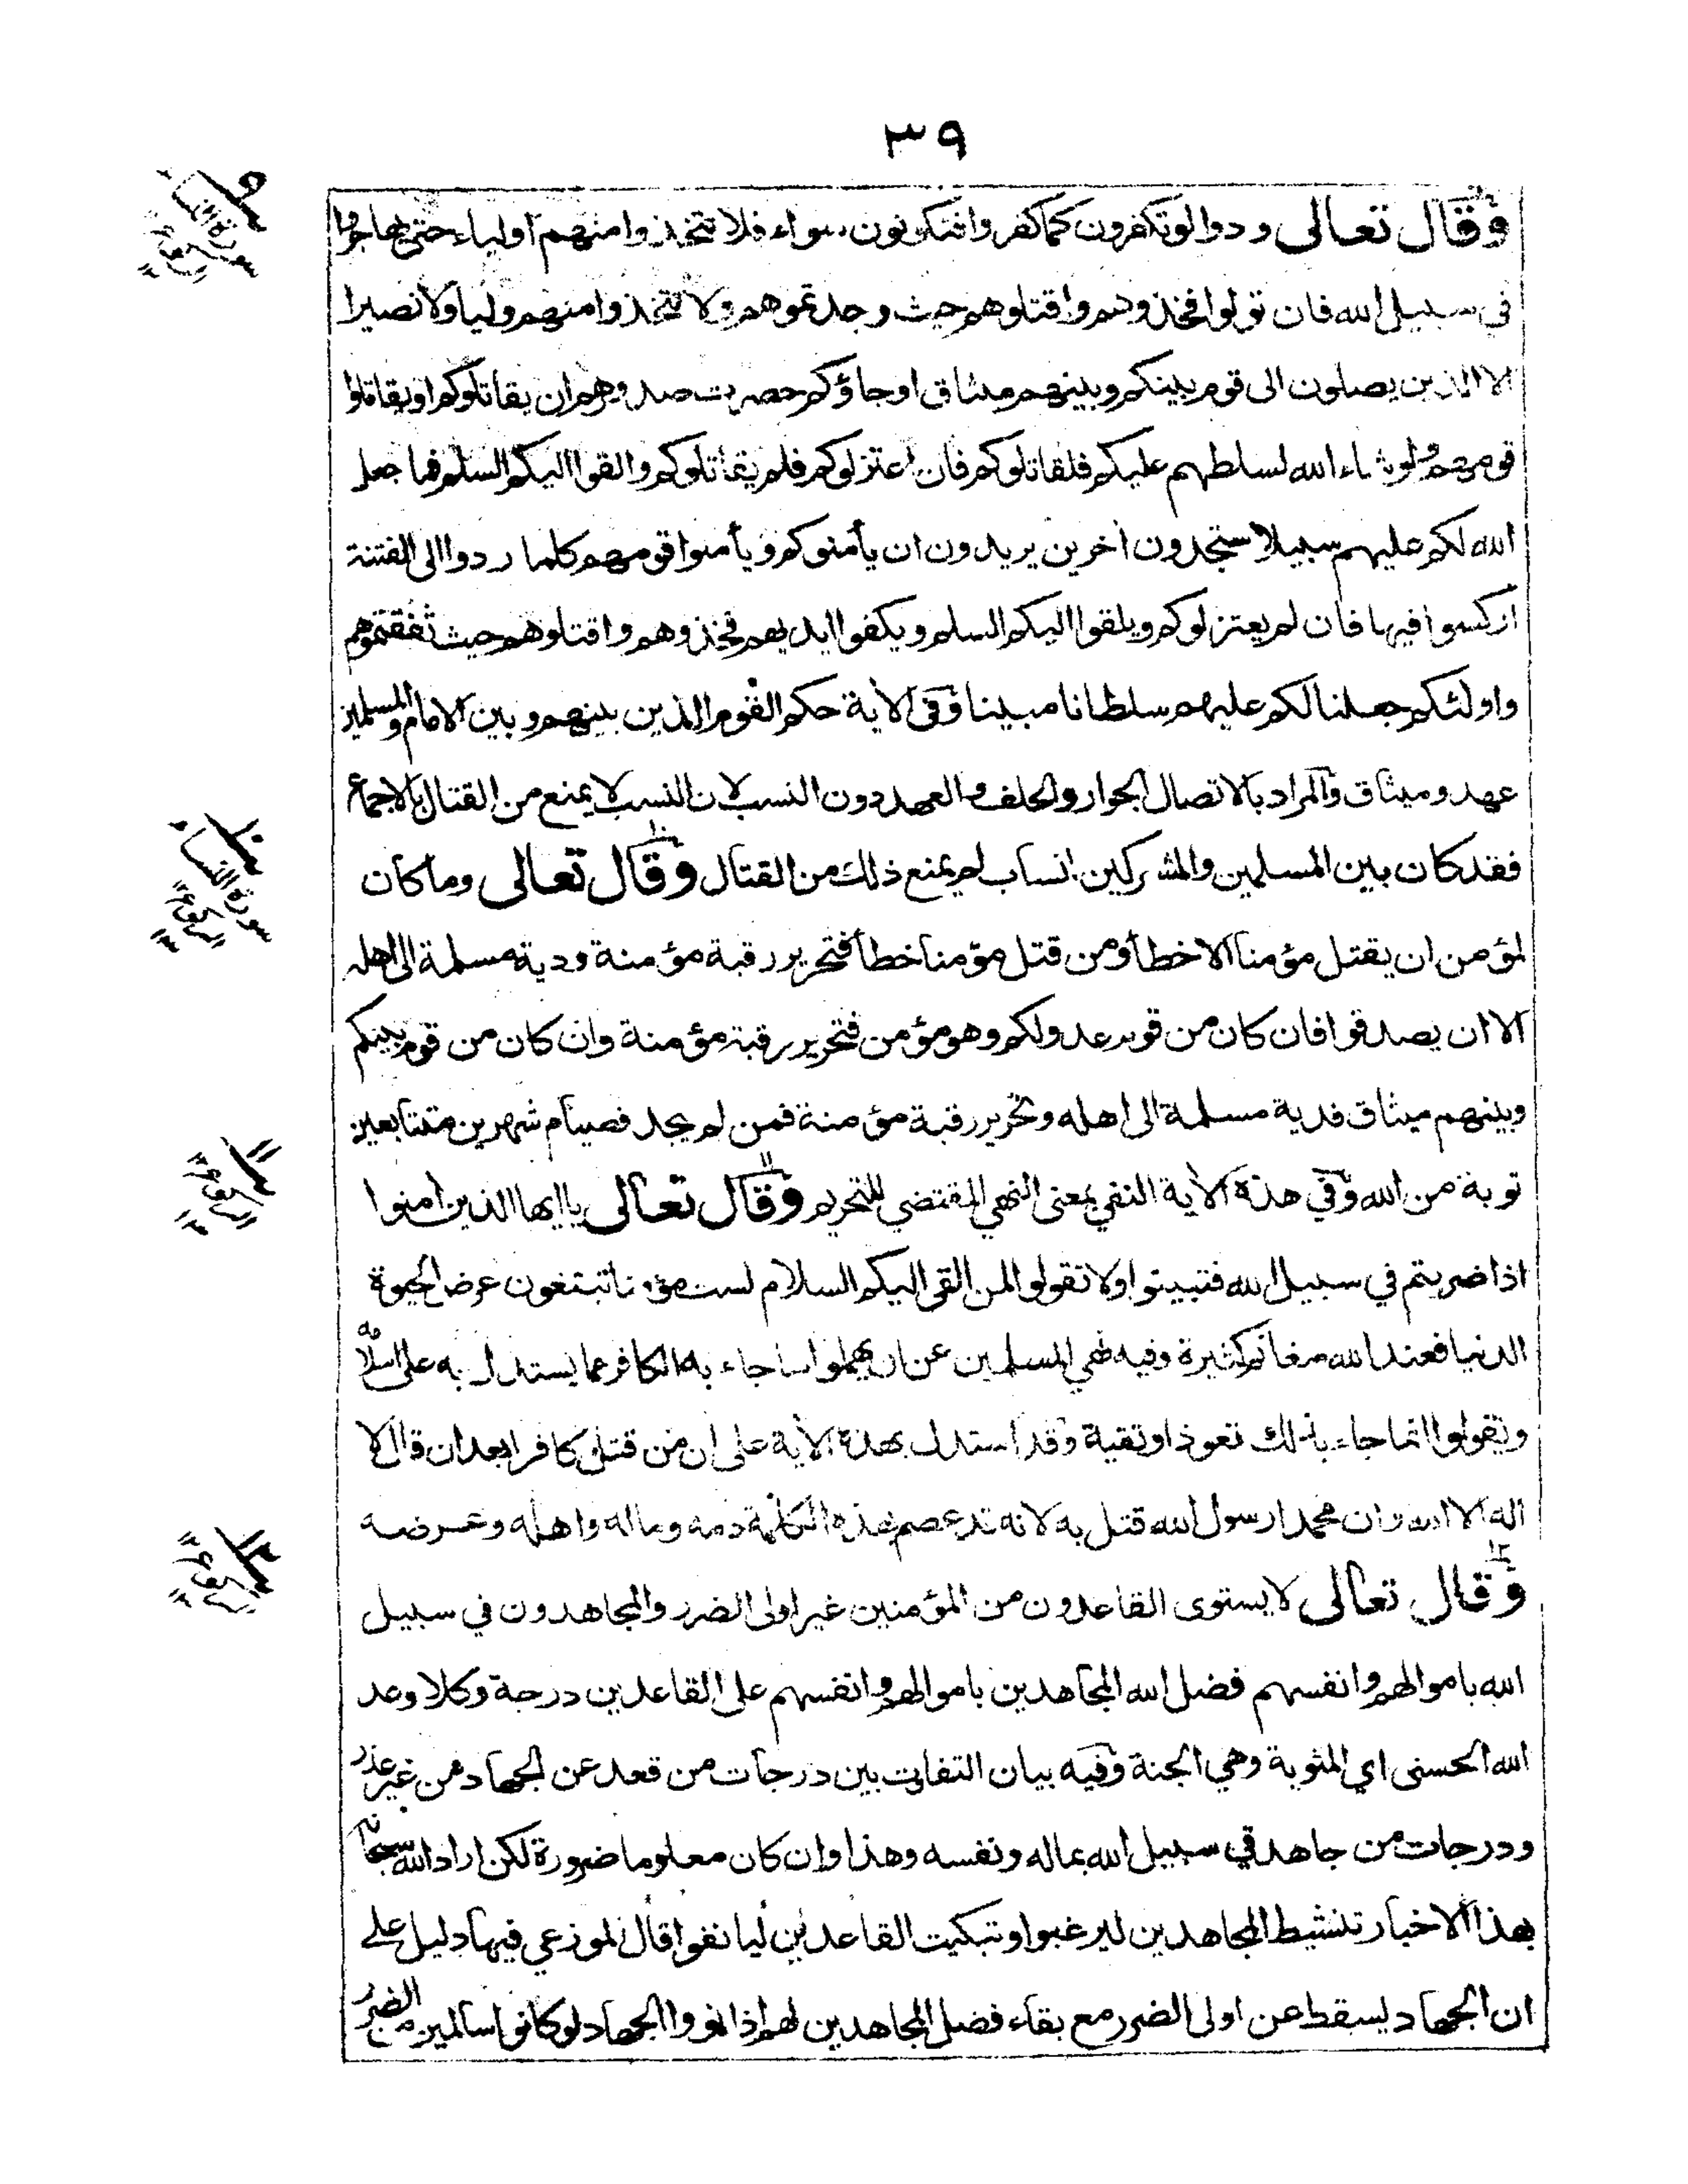 ٣٩
وقال تعالى ودوا لو تكفرون كما كفروا فتكونون سواء فلا تتخذوا منهم اولياء حتى يهاجروا
في سبيل الله فان تولوا فخذوهم واقتلوهم حيث وجدتموهم ولا تتخذوا منهم وليا ولا نصيرا
الا الذين يصلون الى قوم بينكم وبينهم ميثاق او جاؤكم حصرت صدورهم ان يقاتلوكم او يقاتلوا
قومهم ولو شاء الله لسلطهم عليكم فلقاتلوكم فان اعتزلوكم فلم يقاتلوكم والقوا اليكم السلم فما جعل
الله لكم عليهم سبيلا ستجدون اخرين يريدون ان يأمنوكم ويأمنوا قومهم كلما ردوا الى الفتنة
اركسوا فيها فان لم يعتزلوكم ويلقوا اليكم السلم ويكفوا ايديهم فخذوهم واقتلوهم حيث ثقفتموهم
واولئكم جعلنا لكم عليهم سلطانا مبينا وفى الآية حكم القوم الذين بينهم وبين الامام والمسلمين
عهد وميثاق والمراد بالاتصال الجوار والحلف والعهد دون النسب لان النسب لا يمنع من القتال بالاجماع
فقد كان بين المسلمين والمشركين انساب لم يمنع ذلك من القتال وقال تعالى وما كان
لمؤمن ان يقتل مؤمنا الا خطأ ومن قتل مؤمنا خطأ فتحرير رقبة مؤمنة ودية مسلمة الى اهله
الا ان يصدقوا فان كان من قوم عدو لكم وهو مؤمن فتحرير رقبة مؤمنة وان كان من قوم بينكم
وبينهم ميثاق فدية مسلمة الى اهله وتحرير رقبة مؤمنة فمن لم يجد فصيام شهرين متتابعين
توبة من الله وفي هذه الآية النفي بمعنى النهي المقتضي للتحريم وقال تعالى يا ايها الذين امنوا
اذا ضربتم في سبيل الله فتبينوا ولا تقولوا لمن القى اليكم السلام لست مؤمنا تبتغون عرض الحيوة
الدنيا فعند الله مغانم كثيرة وفيه نهي المسلمين عن ان يهملوا ما جاء به الكافر مما يستدل به على اسلامه
ويقولوا انما جاء بذلك تعوذا وتقية وقد استدل بهذه الآية على ان من قتل كافرا بعد ان قال لا
اله الا الله وان محمدا رسول الله قتل به لانه قد عصم بهذه الكلمة دمه وماله واهله وعرضه
وقال تعالى لا يستوى القاعدون من المؤمنين غير اولى الضرر والمجاهدون في سبيل
الله باموالهم وانفسهم فضل الله المجاهدين باموالهم وانفسهم على القاعدين درجة وكلا وعد
الله الحسنى اي المثوبة وهي الجنة وفيه بيان التفاوت بين درجات من قعد عن الجهاد من غير عذر
ودرجات من جاهد في سبيل الله بماله ونفسه وهذا وان كان معلوما ضرورة لكن اراد الله سبحانه
بهذا الاخبار تنشيط المجاهدين ليرغبوا وتبكيت القاعدين ليانفوا قال الموزعي فيها دليل على
ان الجهاد ليسقط عن اولى الضرر مع بقاء فضل المجاهدين لهم اذا نووا الجهاد لو كانوا سالمين من الضرر
٩
سورة النساء
١٠
سورة النساء
١١
١٢